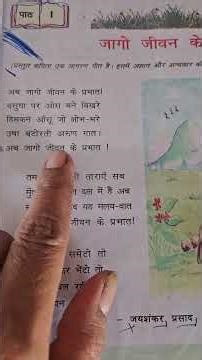 पाठ 1
जागो जीवन के
(प्रस्तुत कविता एक जागरण गीत है। इसमें अज्ञान और अन्धकार की
अब जागो जीवन के प्रभात!
वसुधा पर ओस बने बिखरे
हिमकन आँसू जो क्षोभ-भरे
उषा बटोरती अरुण गात।
अब जागो जीवन के प्रभात!
तम ताराएँ सब
दल में हैं अब
यह मलय-वात
जीवन के प्रभात!
समेटो तो
भेंटो तो
- जयशंकर प्रसाद